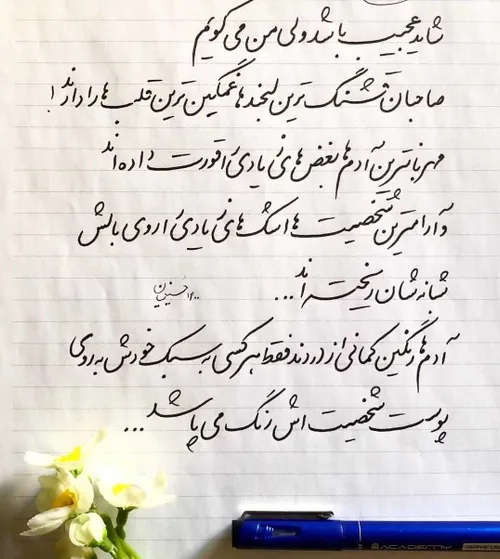 شاید عجیب باشد ولی من می گویم
صاحبان قشنگ ترین لبخندها غمگین ترین قلب ها را دارند!
مهربانترین آدم ها بغض های زیادی را قورت داده اند
و آرامترین شخصیت ها اشک های زیادی را روی بالش
شانه شان ریخته اند...
آدم ها رنگین کمانی از دردند فقط هر کسی به سبک خودش به روی
پوست شخصیت اش رنگ می پاشد...
ACADEMY